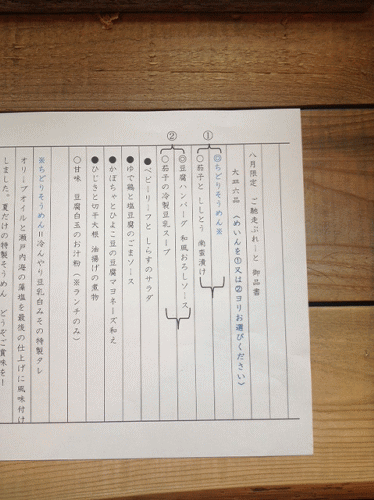 八月限定　ご馳走ぷれーと　御品書
大皿六品　（めいんを①又は②ヨリお選びください）
①
◎ちどりそうめん※
○茄子と　ししとう　南蛮漬け
②
◎豆腐ハンバーグ　和風おろしソース
○茄子の冷製豆乳スープ
●ベビーリーフと　しらすのサラダ
●ゆで鶏と塩豆腐のごまソース
●かぼちゃとひよこ豆の豆腐マヨネーズ和え
●ひじきと切干大根　油揚げの煮物
○甘味　豆腐白玉のお汁粉（※ランチのみ）
※ちどりそうめん＝冷んやり豆乳白みその特製タレ
オリーブオイルと瀬戸内海の藻塩を最後の仕上げに風味付け
しました。夏だけの特製そうめん　どうぞご賞味を！